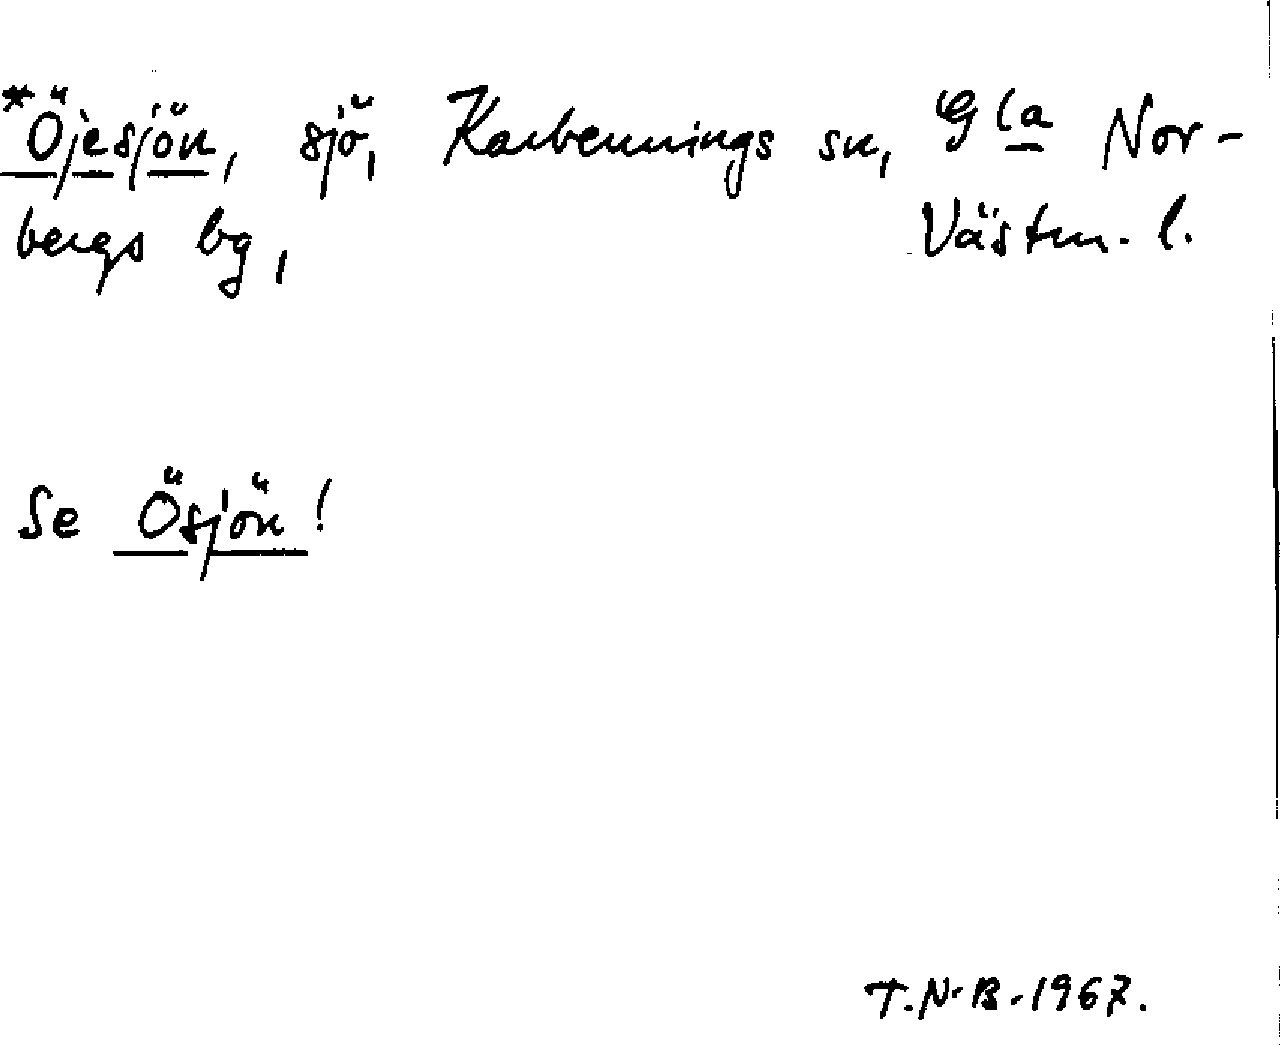 *Öjesjön, sjö, Karbennings sn, Gla Nor-
bergs bg, Västm. l.
Se Ösjön!
T.N.B. 1967.